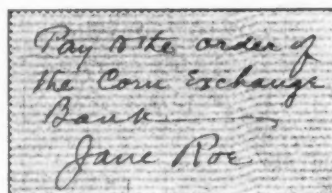 Pay to the order of
the Corn Exchange
Bank
Jane Roe